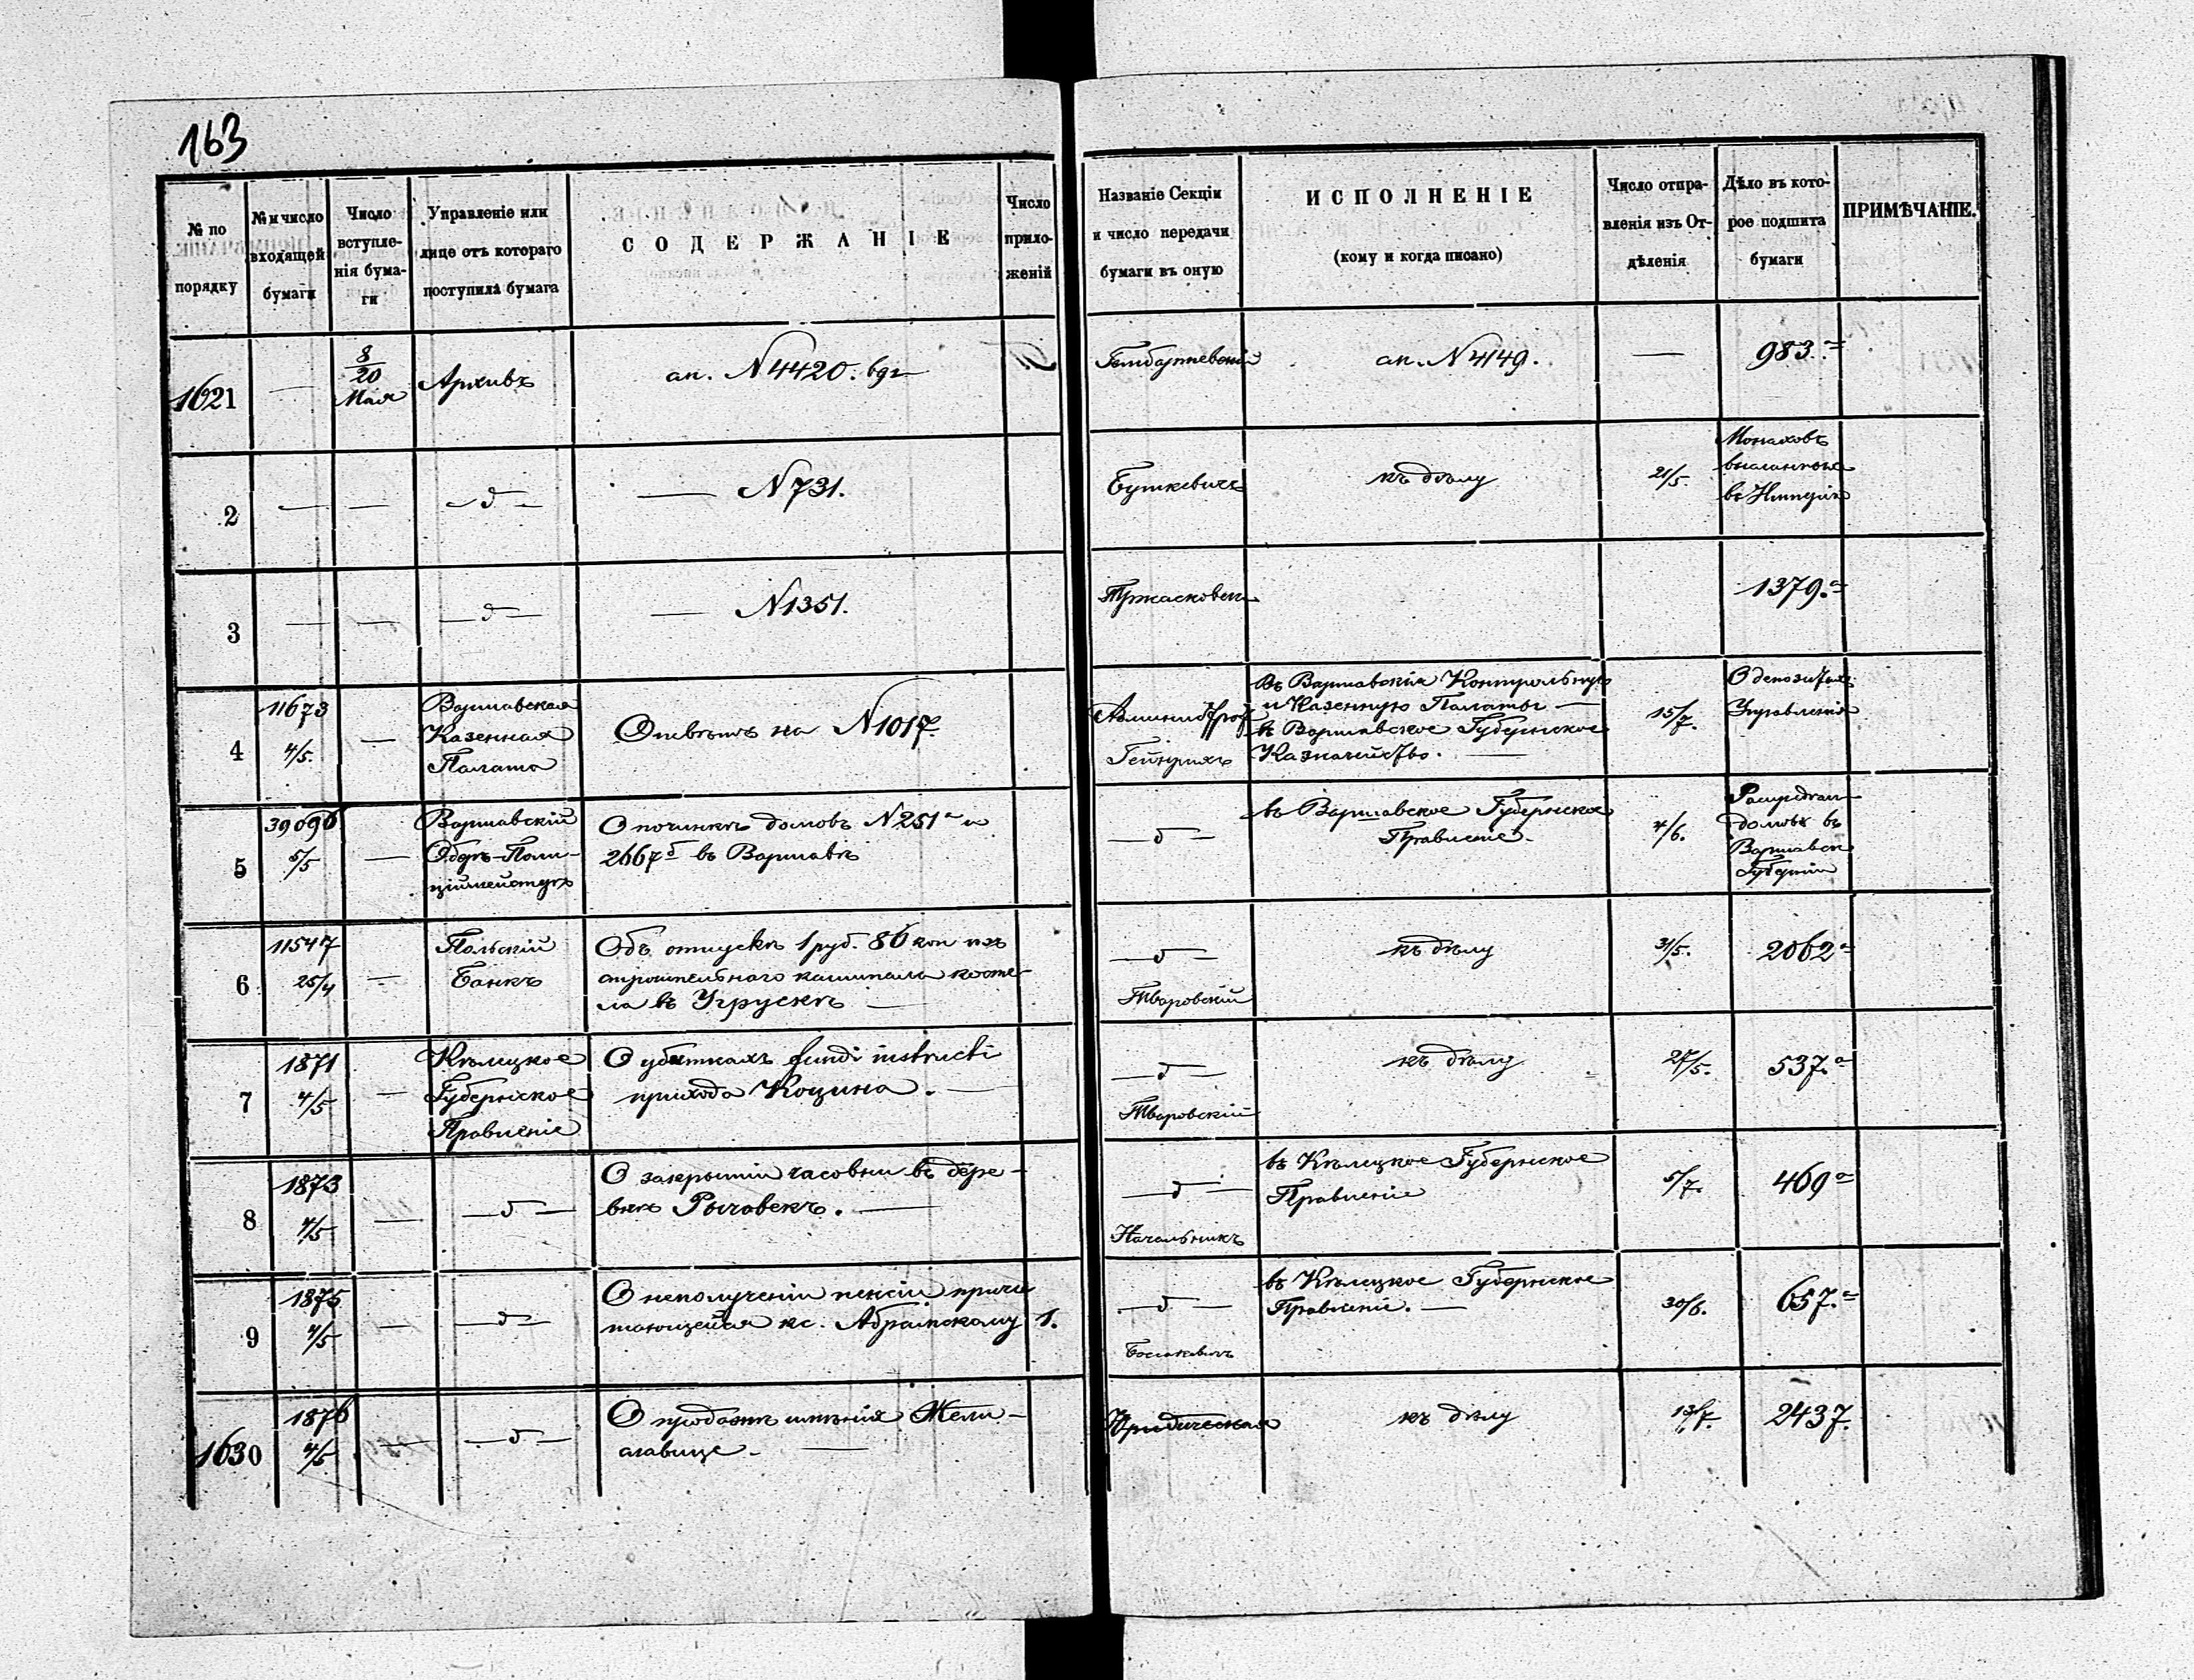 163
№ по порядку
№ и число входящей бумаги
Число вступле-
нія бума-
ги
Управленіе или
лице отъ котораго
поступила бумага
СОДЕРЖАНІЕ
Число
прило-
женій
Названіе Секціи
и число передачи
бумаги въ оную
ИСПОЛНЕНІЕ
(кому и когда писано)
Число отпра-
вленія изъ От-
дѣленія
Дѣло въ кото-
рое подшита
бумаги
ПРИМѢЧАНІЕ.
1621
8/20
Мая
Архивъ
ан. N 4420.
ан. N 4149.
—
983.
2
— N 731.
Буткевичъ
къ дѣлу
21/5.
Монаховъ
въ Имперію
3
— N 1351.
1379.а
4
11673
4/5.
Варшавская
Казенная
Палата
Отвѣтъ на N 1017.
Гейнрихъ
Въ Варшавскія Контрольную
и Казенную Палаты —
въ Варшавское Губернское
Казначейство. —
15/7.
О депозитахъ
Управленія
5
39096
5/5
Варшавскій
Оберъ-Поли-
ціймейстеръ
О починкѣ домовъ N 251а и
2667б въ Варшавѣ
въ Варшавское Губернское
Правленіе.
4/6.
домовъ въ
Варшавск
Губерніи
6
11547
25/4
Польскій
Банкъ
Объ отпускѣ 1 руб. 86 коп изъ
строительнаго капитала косте-
ла въ Угрускѣ —
Тваровскій
къ дѣлу
31/5.
2062а
7
1871
4/5
Кѣлецкое
Губернское
Правленіе
О убыткахъ fundi instructi
прихода Коцина. —
Тваровскій
къ дѣлу
27/5.
537.а
8
1873
4/5
О закрытіи часовни въ дере-
внѣ Рычовекъ. —
Начальникъ
въ Кѣлецкое Губернское
Правленіе
5/7.
469а
9
1875
4/5
О неполученіи пенсіи причи
тающейся кс. Абрамскому
1.
въ Кѣлецкое Губернское
Правленіе. —
30/6.
657.а
1630
1876
4/5
О продажѣ имѣнія Жели-
славице. —
Юридическая
къ дѣлу
13/7.
2437.